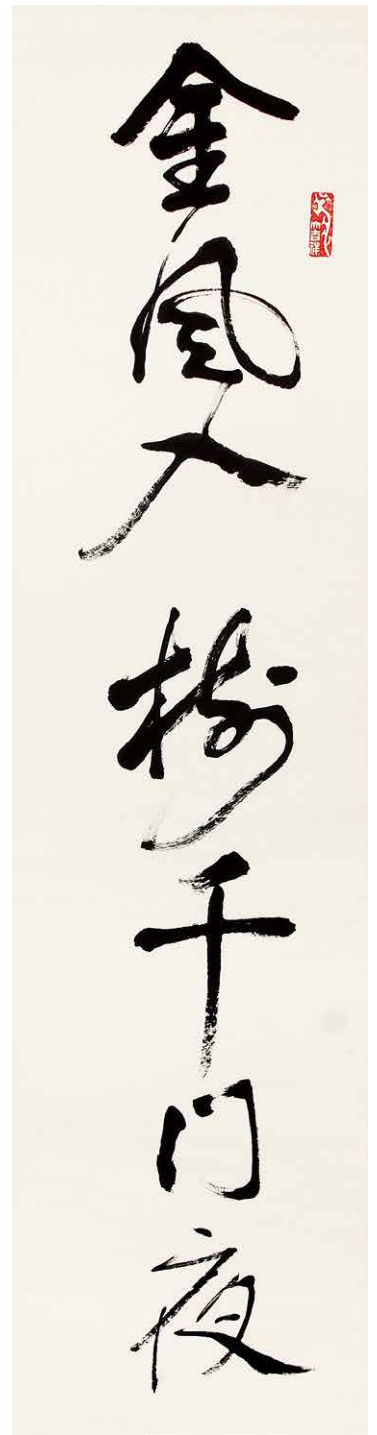 金風入樹千门夜